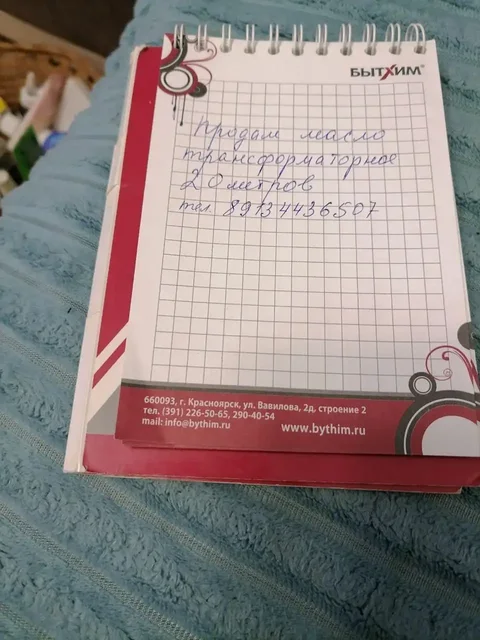 БЫТХИМ®
Продам масло
трансформаторное
20 метров
тел. 89134436507
660093, г. Красноярск, ул. Вавилова, 2д, строение 2
тел. (391) 226-50-65, 290-40-54
mail: info@bythim.ru
www.bythim.ru